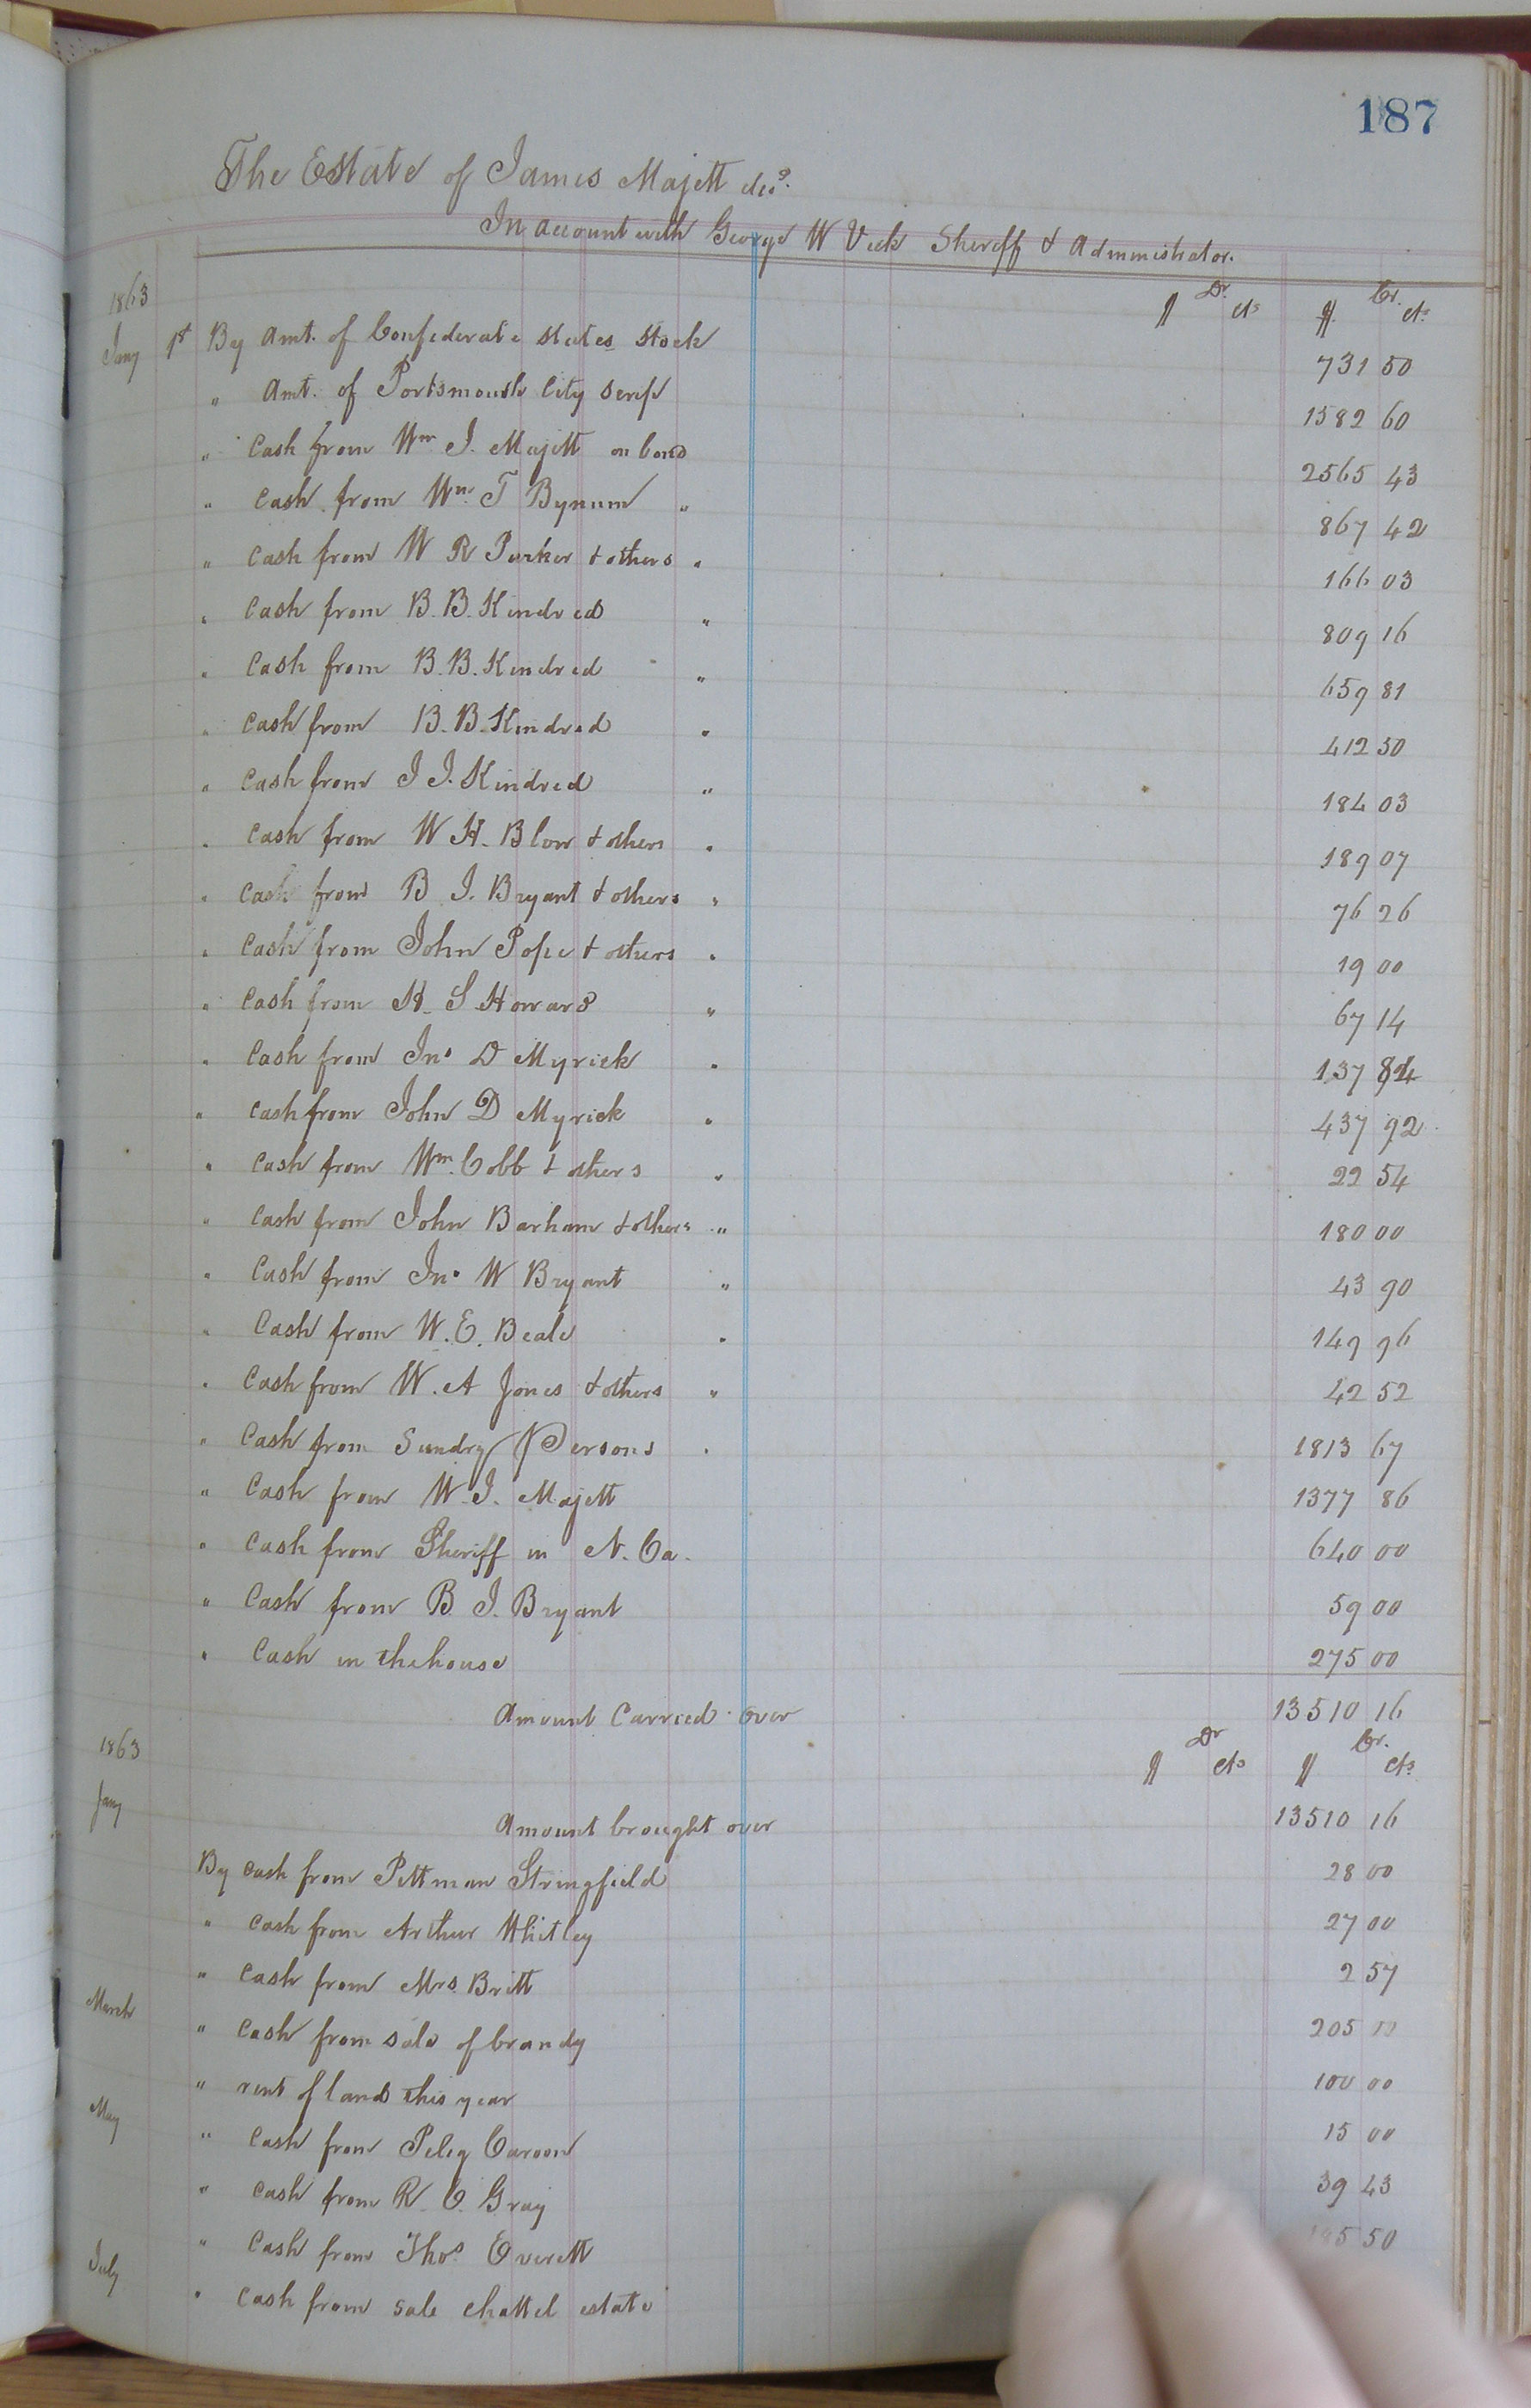 187
The Estate of James Majett dec?.
In account with George W Vick Sheriff & Administrator.
1863 $ Dr. cts $ Cr. cts
Jany 1st By Amt. of Confederate states stock 731 50
" Amt. of Portsmouth City Scrip 1582 60
" Cash from Wm J. Majett on bond 2565 43
" Cash from Wm T Bynum " 867 42
" Cash from W R Parker & others " 166 03
" Cash from B. B. Kindred " 809 16
" Cash from B. B. Kindred " 659 81
" Cash from B. B. Kindred " 412 50
" Cash from J J. Kindred " 184 03
" Cash from W H. Blow & others " 189 07
" Cash from B J. Bryant & others " 76 26
" Cash from John Pope & others " 19 00
" Cash from H. S Howard " 67 14
" Cash from Jno D Myrick " 137 84
" Cash from John D Myrick " 437 92
" Cash from Wm. Cobb & others " 22 54
" Cash from John Barham & others " 180 00
" Cash from Jno W Bryant " 43 90
" Cash from W. E. Beale " 149 96
" Cash from W. A Jones & others " 42 52
" Cash from Sundry Persons " 1813 67
" Cash from W. J. Majett 1377 86
" Cash from Sheriff in N. Ca. 640 00
" Cash from B. J. Bryant 59 00
" Cash in the house 275 00
Amount Carried over 13510 16
1863 $ Dr cts $ Cr. cts
Jany
Amount brought over 13510 16
By cash from Pittman Stringfield 28 00
" Cash from Arthur Whitley 27 00
" Cash from Mrs. Britt 2 57
March " Cash from sale of brandy 205
" rent of land this year 100 00
May " Cash from Peleg 15 00
" Cash from R. C. Gray 39 43
" Cash from Thos. Everett 50
July " Cash from sale chattel estate